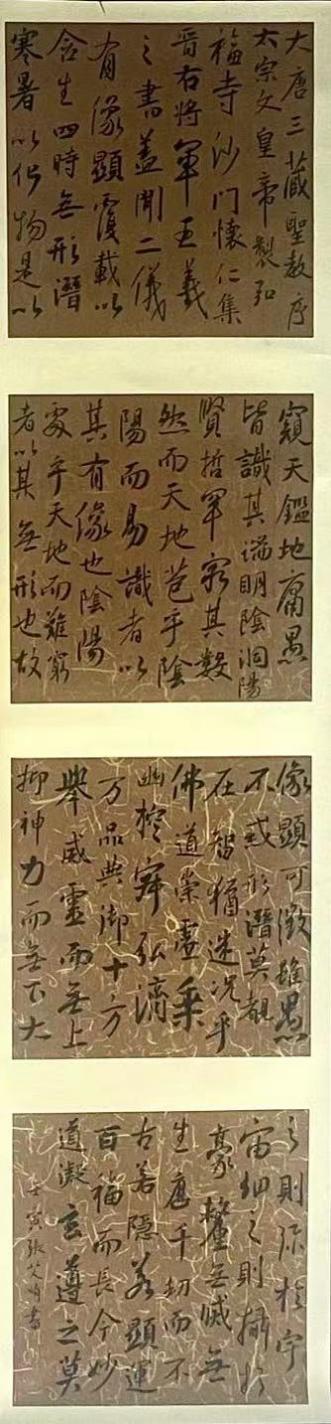 大唐三藏聖教序
太宗文皇帝製弘
福寺沙門懷仁集
晉右將軍王羲
之書蓋聞二儀
有像顯覆載以
含生四時無形潛
寒暑以化物是以
窺天鑑地庸愚
皆識其端明陰洞陽
賢哲罕窮其數
然而天地苞乎陰
陽而易識者以
其有像也陰陽
處乎天地而難窮
者以其無形也故
像顯可徵雖愚
不惑形潛莫覩
在智猶迷況乎
佛道崇虛乘
幽控寂弘濟
万品典御十方
舉威靈而無上
抑神力而無下大
之則弥於宇
宙細之則攝於
豪釐無滅無
生歷千劫而不
古若隱若顯運
百福而長今妙
道凝玄遵之莫
壬寅張書